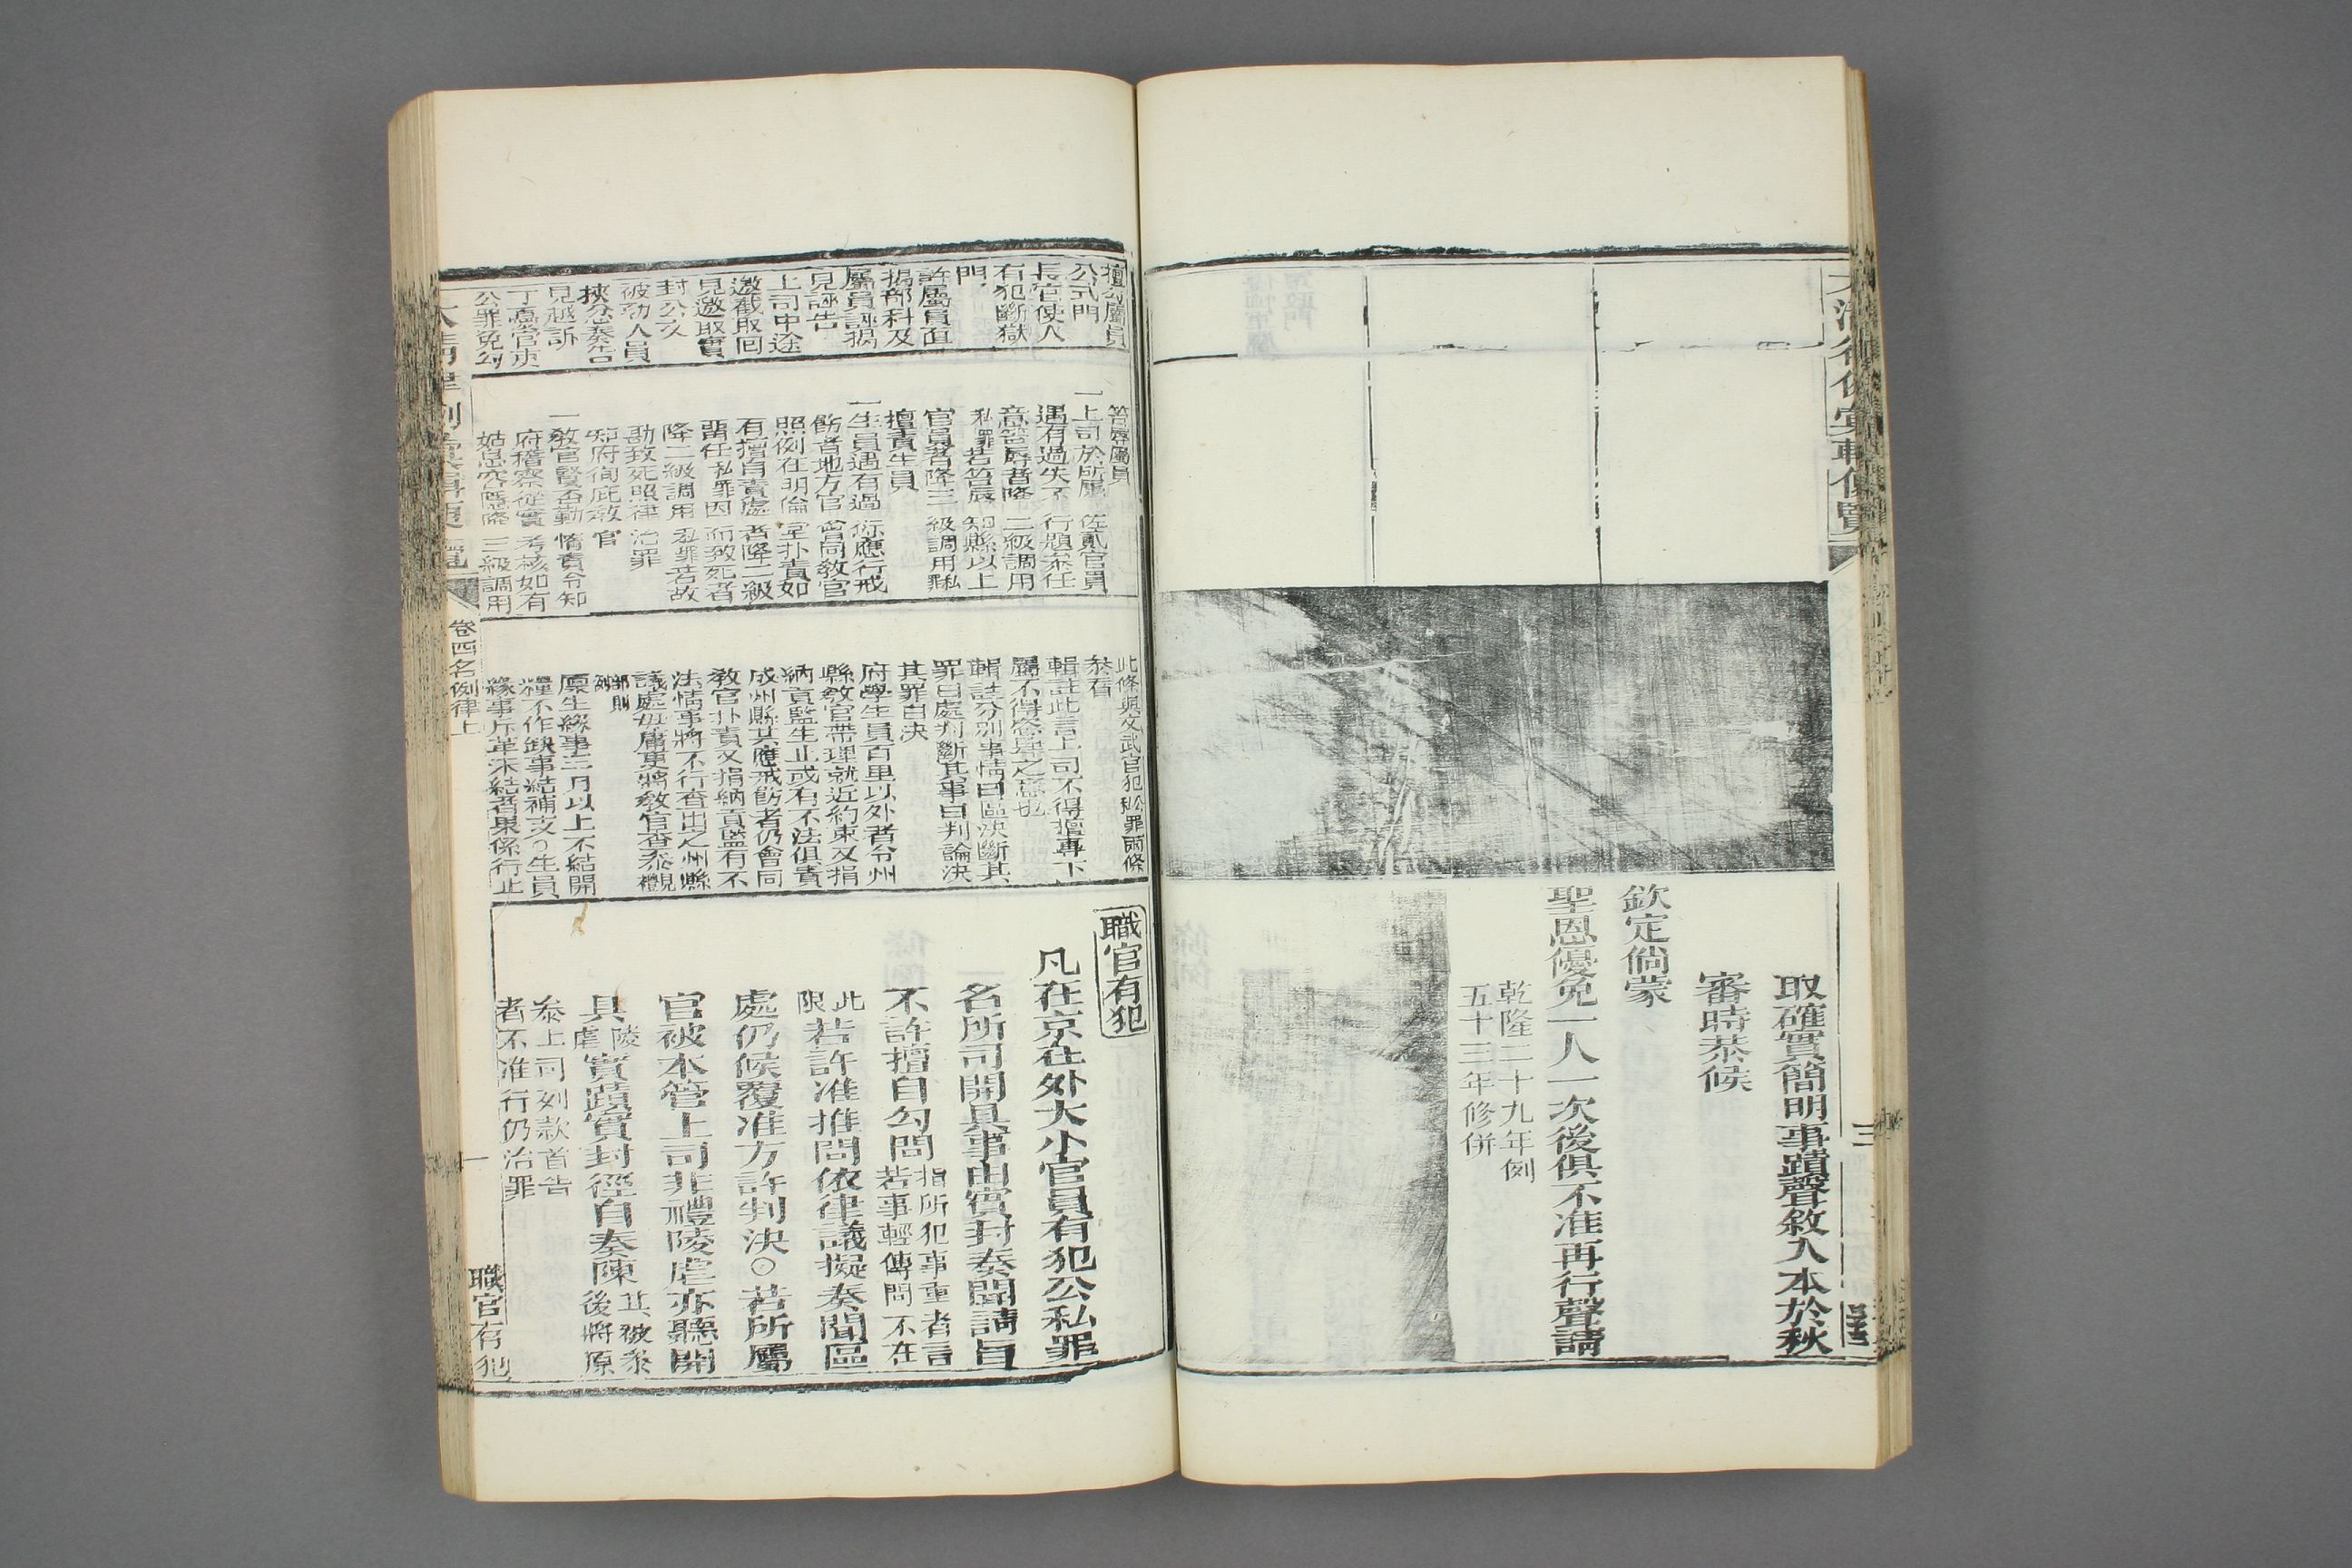 取確實簡明事蹟聲敘入本於秋
審時恭候
欽定倘蒙
聖恩優免一人一次後俱不准再行聲請
乾隆二十九年例
五十三年修併
擅勾屬員
公式門
長官使人
有犯斷獄
門
許屬員面
揭部科及
屬員誣揭
見誣告
上司中途
邀截取回
見邀取實
封公文
被劾人員
挾忿奏告
見越訴
丁憂官吏
公罪免勾
笞辱屬員
一上司於所屬佐貳官員
遇有過失不行題參任
意笞辱者降二級調用
私罪若笞辱知縣以上
官員者降三級調用私罪
擅責生員
一生員遇有過
飭者地方官會同教官
照例在明倫堂扑責如
有擅自責處者降二級
留任私罪因而致死者
降二級調用私罪若故
勘致死照律治罪
知府徇庇教官
一教官賢否勤惰責令知
府稽察從實考核如有
三級調用
此條與文武官犯私罪兩條
參看
輯註此言上司不得擅專下
屬不得
輯註分別事情曰區決斷其
罪曰處判斷其事曰判論決
其罪曰決
府學生員百里以外者令州
縣教官帶理就近約束又捐
納貢監生止或有不法俱責
成州縣其應戒飭者仍會同
教官扑責又捐納貢監有不
法情事將不行查出之州縣
議處毋庸更將教官查參禮
部則
例
廩生緣事三月以上不結開
糧不作缺事結補支○生員
緣事斥革未結者果係行止
職官有犯
凡在京在外大小官員有犯公私罪
名所司開具事由實封奏聞請旨
不許擅自勾問指所犯事重者言
若事輕傳問不在
此
限若許准推問依律議擬奏聞區
處仍候覆准方許判決○若所屬
官被本管上司非禮陵虐亦聽開
具陵
虐實蹟實封徑自奏陳其被參
後將原
參上司列款首告
者不准行仍治罪
卷四名例律上
一
職官有犯